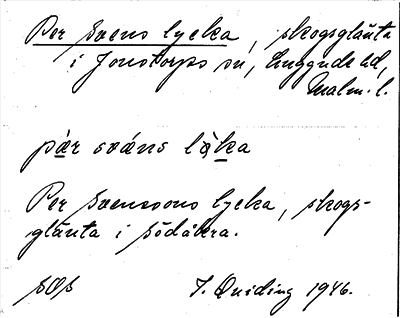 Per Svens lycka, skogsglänta
i Jonstorps sn, Luggude hd,
Malm. l.
pær svæns løka
Per Svenssons lycka, skogs-
glänta i Södåkra.
SOS J. Quiding 1946.